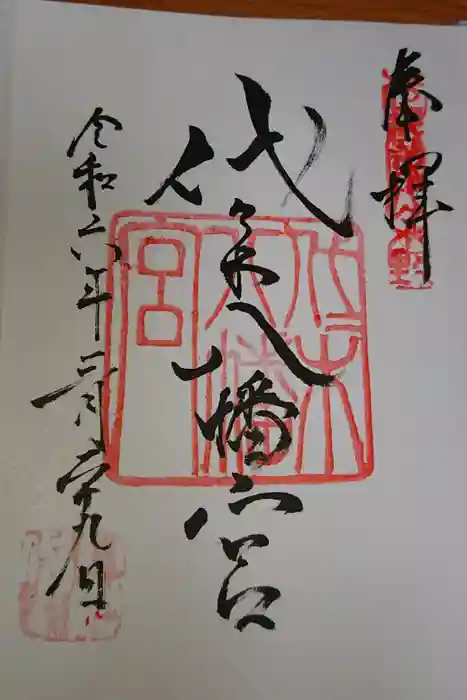 奉拝
代々木八幡宮
代木
八幡
宮
令和六年二月二十九日